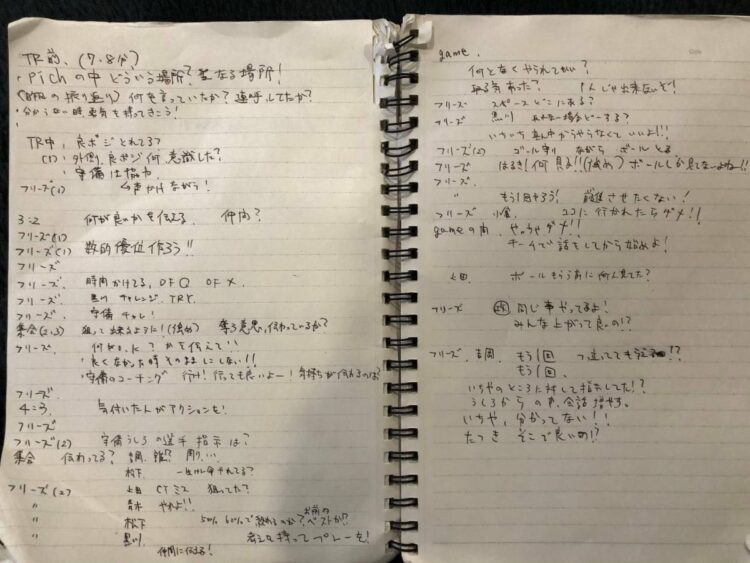 TR前、(7.8分)
・Pichの中 どういう場所? 聖なる場所!
何を言っていたか? 連呼してたか?
・分からない時 勇気を持ってきこう!
TR中、良ポジとれてる?
(1)・外側、良ポジ 何 意識した?
・守備は協力
フリーズ(1) 声かけながら!
3:2 何が良いかを伝える 仲間?
フリーズ(1)
フリーズ(1) 数的優位作ろう!!
フリーズ
フリーズ、 時間かけてる、DF○ OF×
フリーズ、 黒川 チャレンジ、TRY、
フリーズ、 守備 チャレ!
集合(2,3) 狙って 出来るように!(強め) 奪う意思、伝わっているか?
フリーズ、 何が○、×? かを伝えて!!
・良くなかった時 そのままにしない!!
・守備のコーチング 行け! 行っても良いよー! 気持ちが伝わるのは?
フリーズ
4:3、 気付いた人がアクションを!
フリーズ
フリーズ(2) 守備うしろの選手 指示は?
集合 伝わってる? 誰?
松下
フリーズ(2) 上田 CTミス 狙ってた?
〃 青木 やれよ!!
〃 松下 50% 60%で終わるのか? お前のベストか?
〃 黒川 考えを持ってプレーを!
仲間に伝える!
game、
何となくやられてない?
やる気あった? 1人じゃ出来ないぞ!
フリーズ スペースどこにある?
フリーズ 黒川 あんな場合どーする?
いちいち 真ん中からやらなくていいよ!!
フリーズ(2) ゴール守りながら ボールとる
フリーズ はるき! 何見る!!(強め) ボールしか見てないよねー!!
フリーズ、
〃 もう1回やろう! 前進させたくない!
フリーズ 小倉 ココに行かれたらダメ!!
gameの間、 やっちゃダメ!!
チームで話をしてから始めよ!
上田 ボールもらう前に何人見てた?
フリーズ 同じ事やってるよ!
みんな上がって良いの!?
フリーズ、 もう1回
もう1回、
いちやのところに対して指示してた!?
うしろからの声、会話増やす。
いちや、分かってない!!
たつき そこで良いの!?